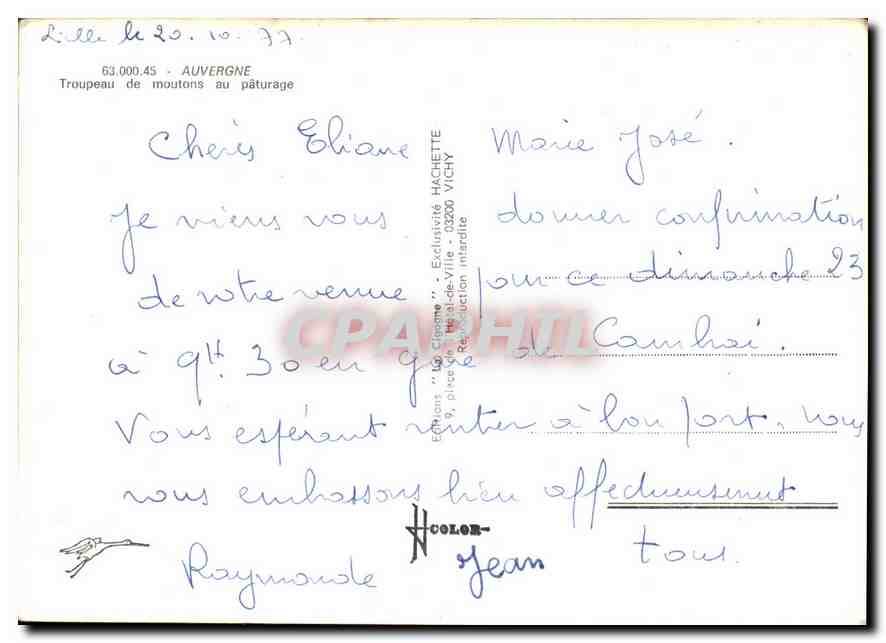 Lille le 20.10.77.
63.000.45 - AUVERGNE
Troupeau de moutons au pâturage
Chères Eliane Marie José.
Je viens vous donner confirmation
de notre venue pour ce dimanche 23
à 9H.30 en gare de Cambrai.
Vous espérant rentrer à bon port, nous
vous embrassons bien affectueusement
tous.
Raymonde Jean
COLOR
Editions "La Cigogne" - Exclusivité HACHETTE
9, place de l'Hôtel-de-Ville - 03200 VICHY
Reproduction interdite
CPAPHIL